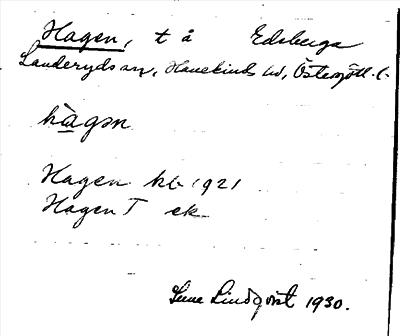 Hagen, t å Edeberga
Landeryds sn, Hanekinds hd, Östergötl. l.
hàgən
Hagen kb 1921
Hagen T ek
Sune Lindqvist 1930.